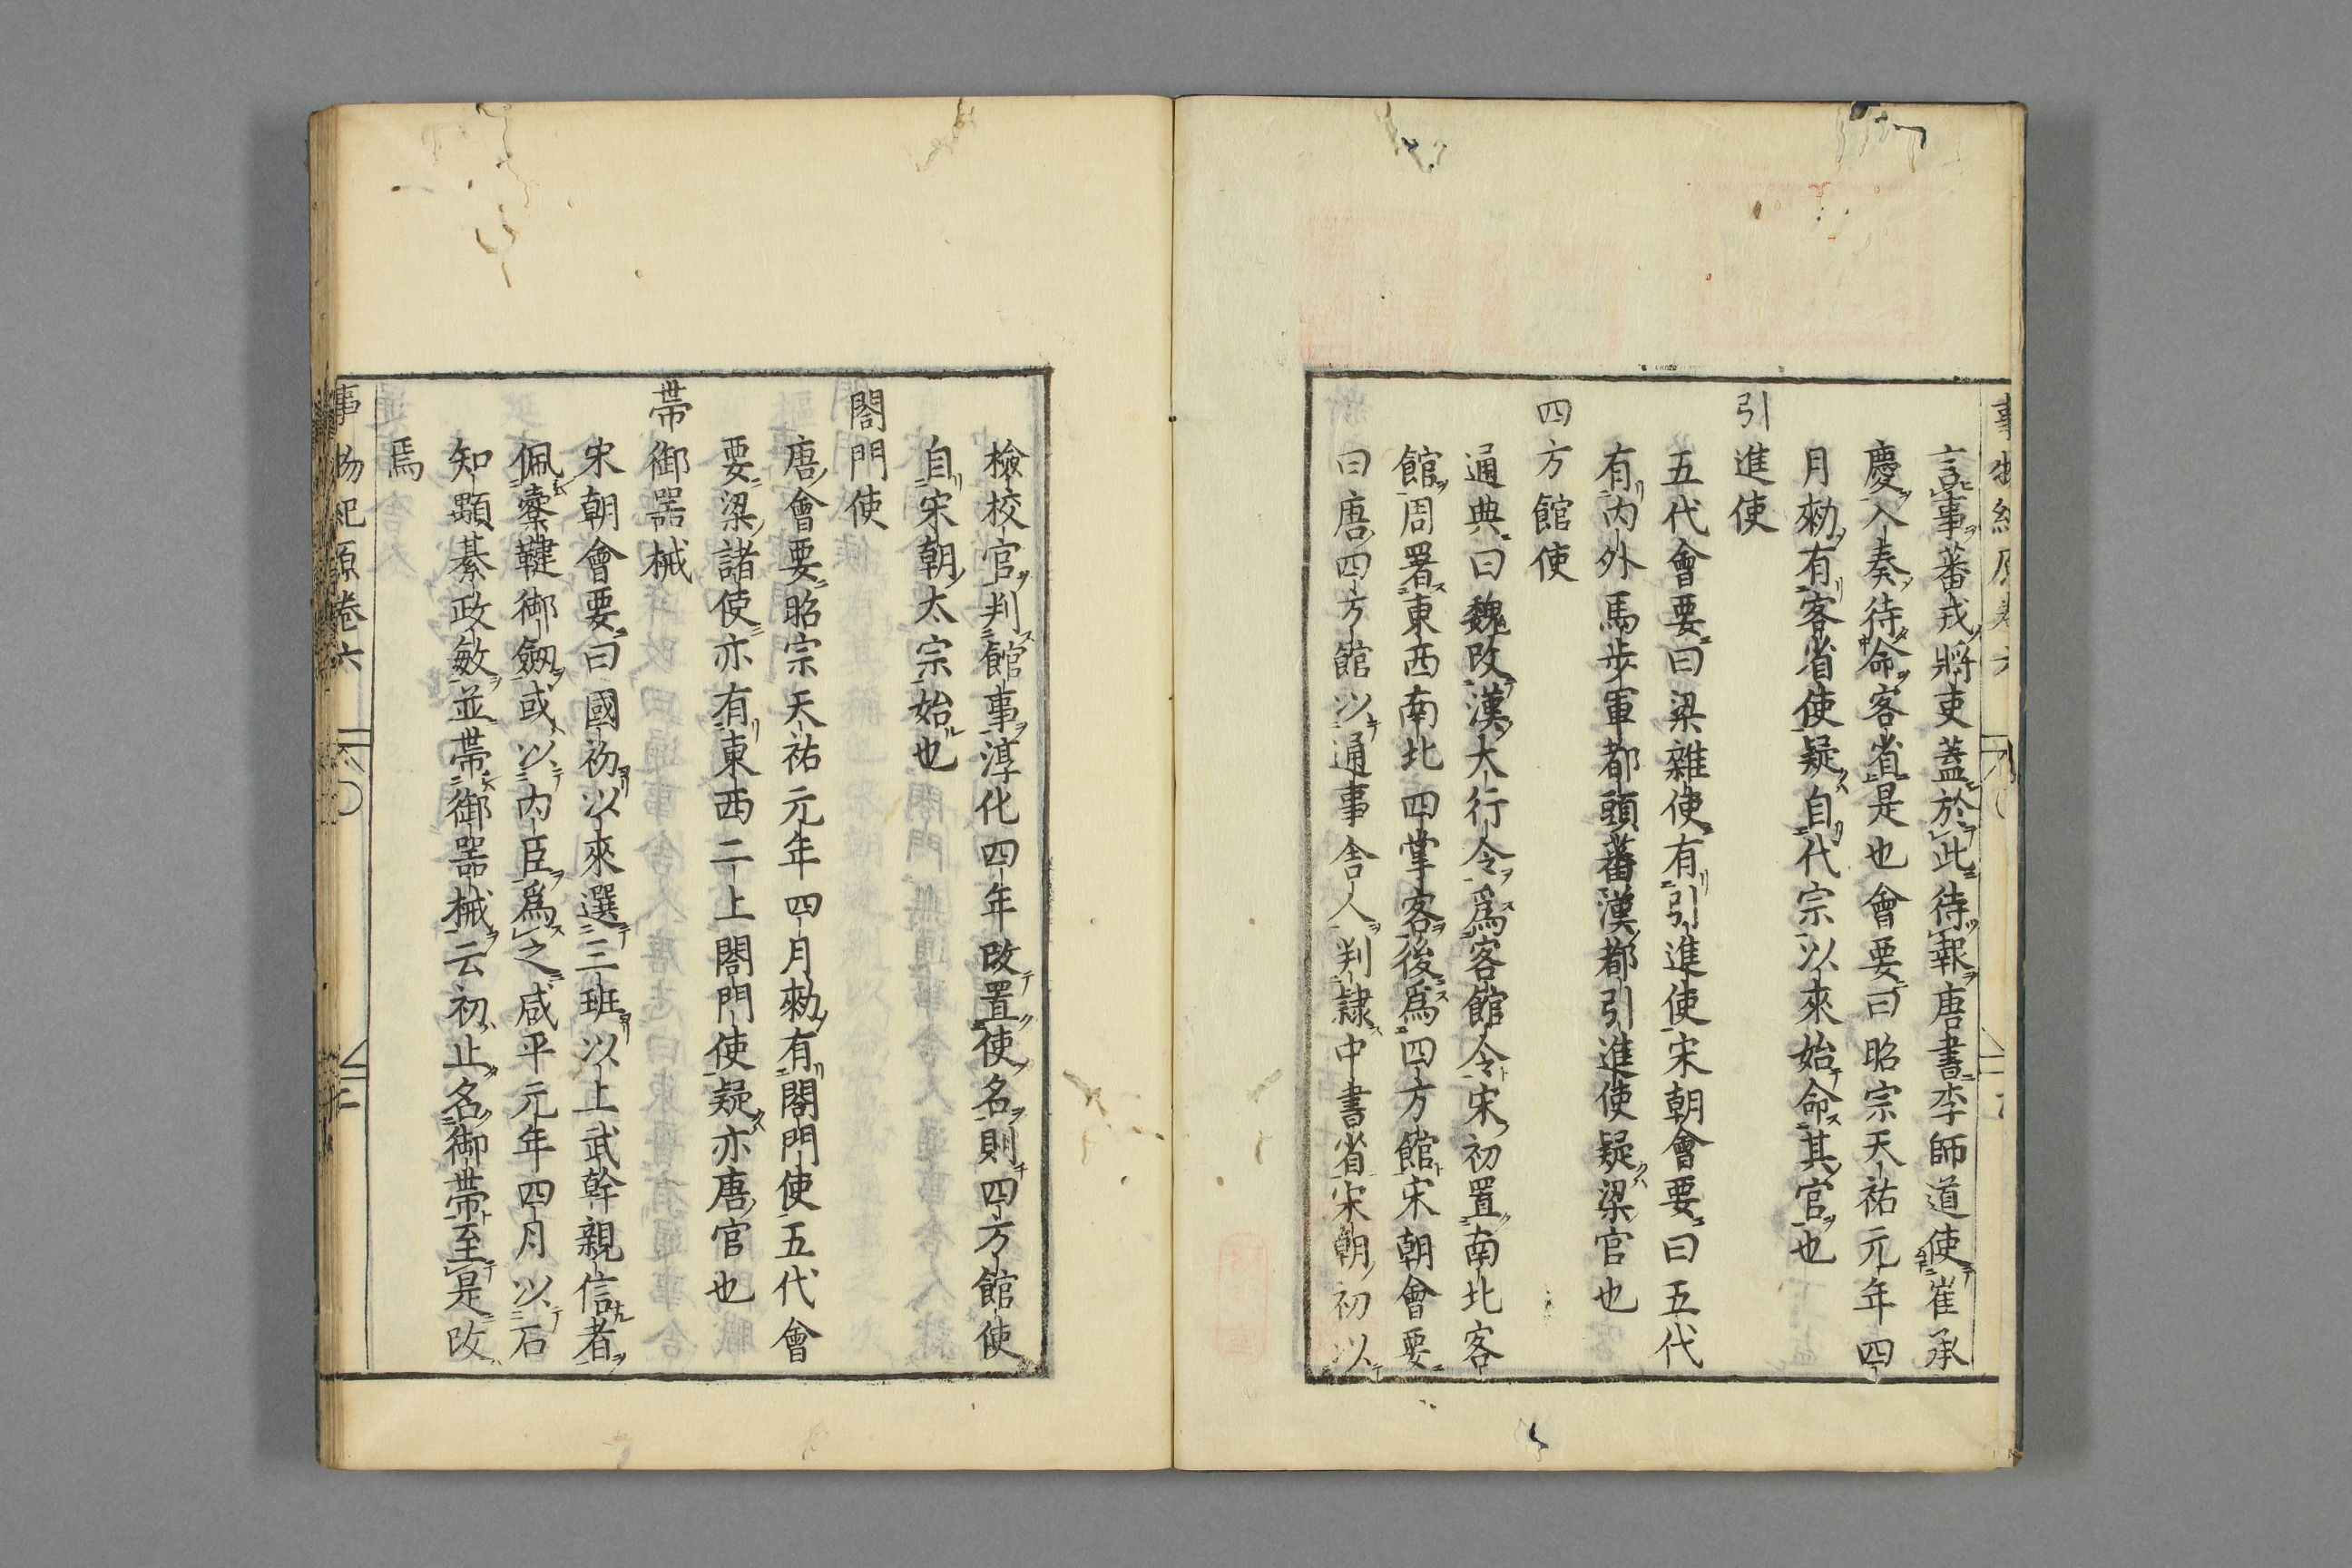 言事蕃戎將吏蓋於此待報唐書李師道使崔承
慶入奏待命客省是也會要曰昭宗天祐元年四
月勑有客省使疑自代宗以來始命其官也
引進使
五代會要曰梁雜使有引進使宋朝會要曰五代
有內外馬步軍都頭蕃漢都引進使疑梁官也
四方館使
通典曰魏改漢大行令爲客館令宋初置南北客
館周署東西南北四掌客後爲四方館宋朝會要
曰唐四方館以通事舍人判隷中書省宋朝初以
檢校官判館事淳化四年改置使名則四方館使
自宋朝太宗始也
閤門使
唐會要昭宗天祐元年四月勑有閤門使五代會
要梁諸使亦有東西二上閤門使疑亦唐官也
帶御噐械
宋朝會要曰國初以來選三班以上武幹親信者
佩櫜鞬御劔或以內臣爲之咸平元年四月以石
知顒綦政敏並帶御噐械云初止名御帶至是改
焉
事物紀原卷六